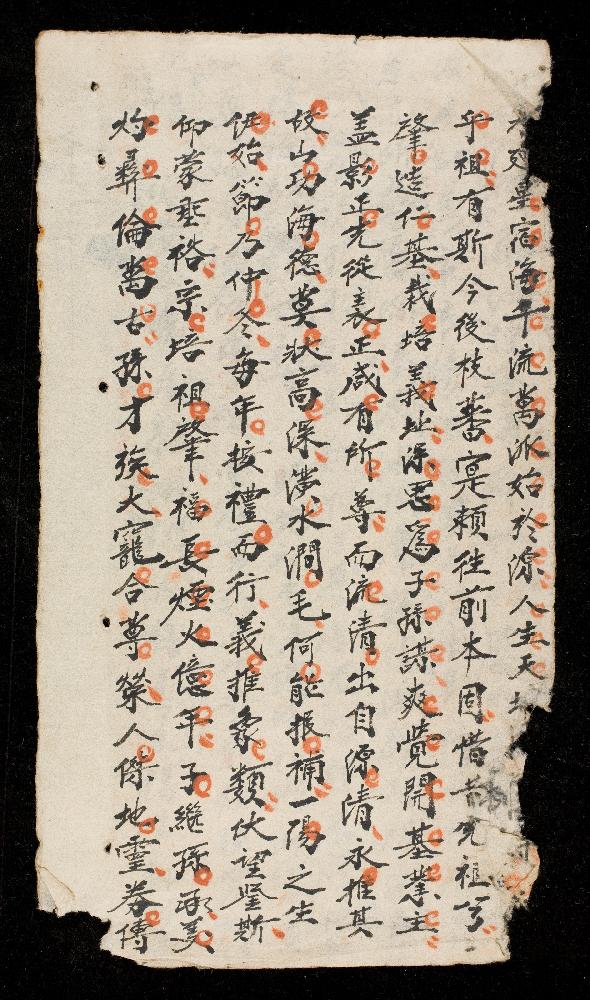 星宿海千流萬派始於源人生天
乎祖有斯今後枝蕃寔賴徃前本固惜昔先祖
肇造仁基栽培義址深思為子孫謀爽覺開基業主
盖影正先從表正咸有所尊而流清出自源清永推其
故山功海德莫狀高深潢水澗毛何能报補一陽之生
伊始節乃仲冬每年按禮而行義推象類伏望鑒斯
仰蒙垂裕宗培祖肇福長煙火億年子繼孫承美
灼彝倫萬古孫才族大寵合尊榮人傑地靈券傳